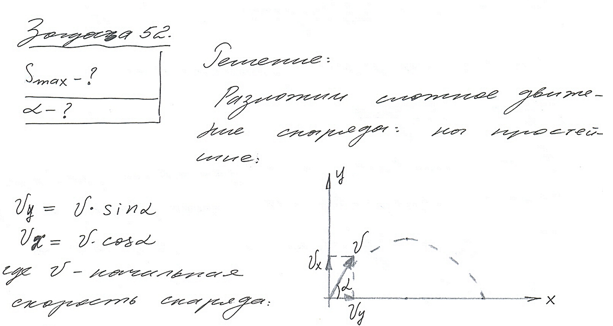 Задача 52.
Smax - ?
α - ?
Решение:
Разложим сложное движе-
ние снаряда: на простей-
шие:
Vy = V · sinα
Vx = V · cosα
где V - начальная
скорость снаряда:
y
Vx
V
α
Vy
x